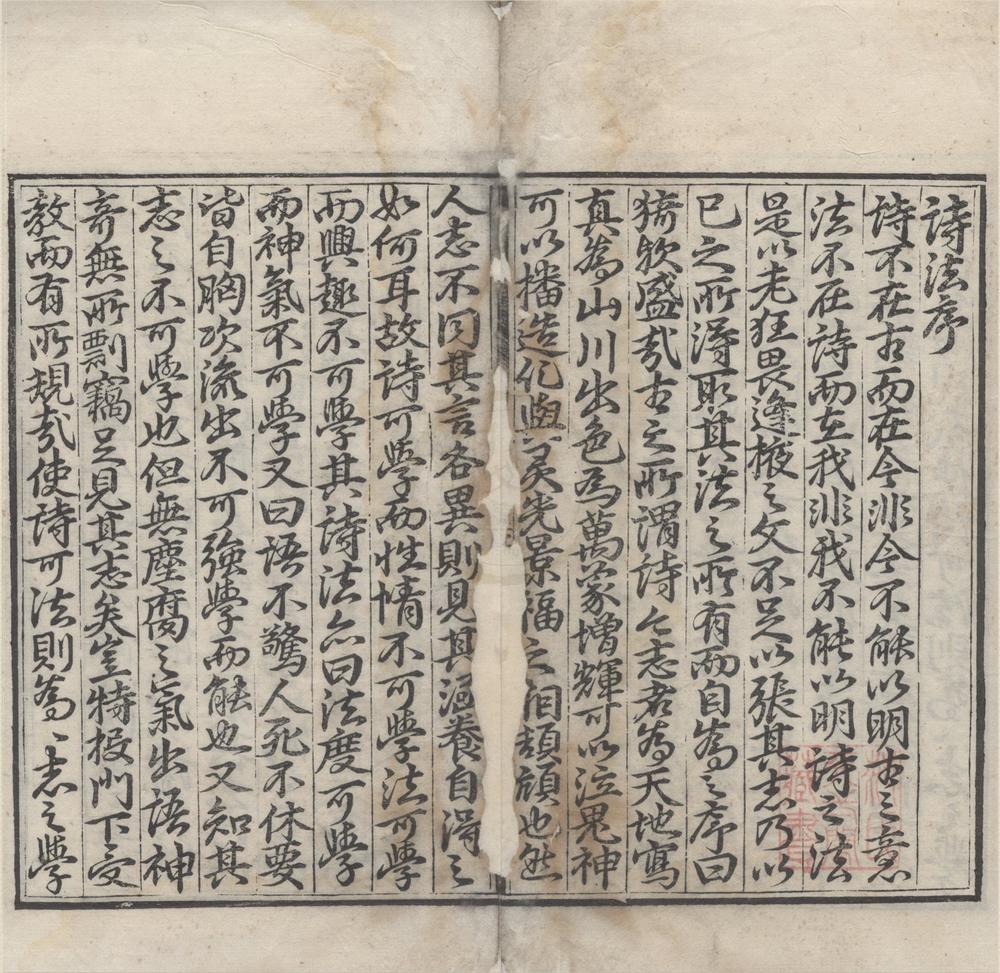 詩法序
詩不在古而在今非今不能以明古之意
法不在詩而在我非我不能以明詩之法
是以老狂畏逢掖之文不足以張其志乃以
已之所得取其法之所有而自為之序曰
猗歟盛哉古之所謂詩今志者為天地寫
真為山川出色為萬彙增輝可以泣鬼神
可以播造化與光景福之頡頏也然
人志不同其言各異則見其涵養自得之
如何耳故詩可學而性情不可學法可學
而興趣不可學其詩法亦曰法度可學
而神氣不可學又曰語不驚人死不休要
皆自胸次流出不可強學而能也又知其
志之不可學也但無塵腐之氣出語神
奇無所剽竊足見其志矣豈特投門下受
教而有所規哉使詩可法則為、志之學